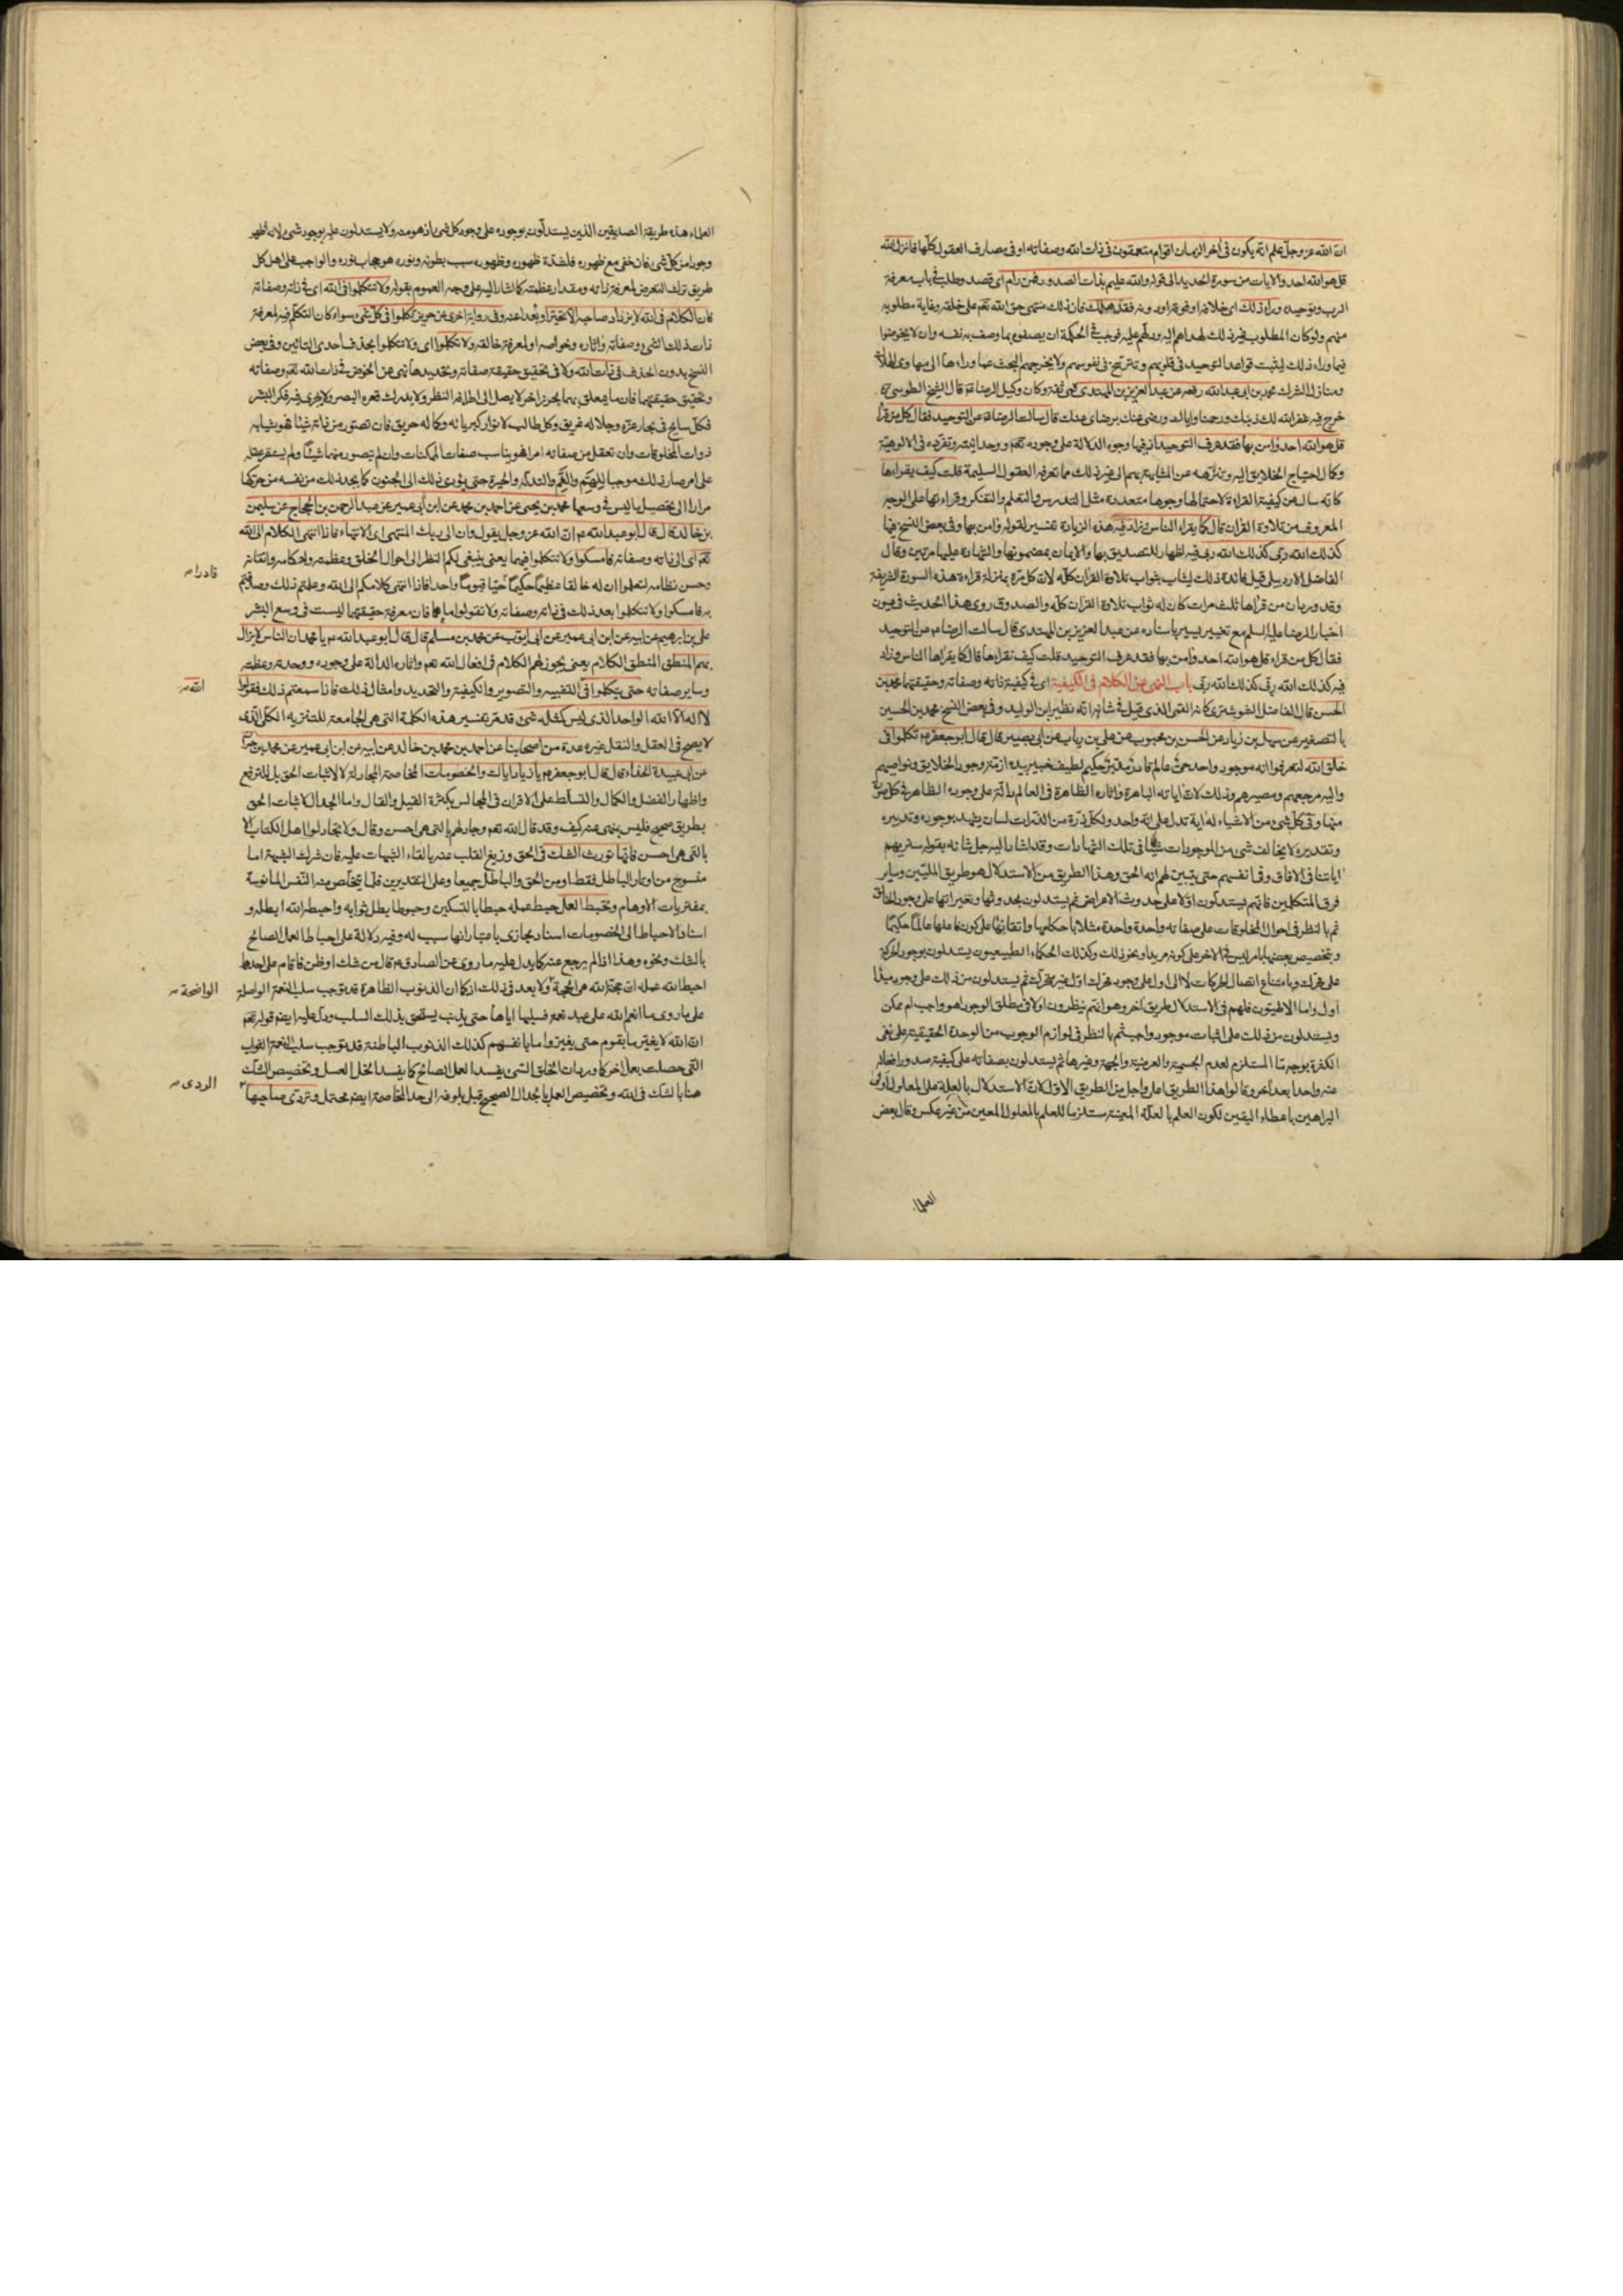 ان الله عز وجل علم انه يكون فى اخر الزمان اقوام متعمقون فى ذات الله وصفاته او فى مصارف العقول كلها فانزل الله
قل هو الله احد والايات من سورة الحديد الى قوله والله عليم بذات الصدور فمن رام اى قصد وطلب فى باب معرفة
الرب وتوحيده وراء ذلك اى خلافه او فوقه او دونه فقد هلك فان ذلك منتهى حق الله تعم على خلقه وغاية مطلوبه
منهم ولو كان المطلوب غير ذلك لهداهم اليه ودلهم عليه فوجب فى الحكمة ان يصفوه بما وصف به نفسه وان لا يخوضوا
فيما وراء ذلك ليثبت قواعد التوحيد فى قلوبهم وتترسخ فى نفوسهم ولا يخرجهم البحث عما وراءها الى
ومنازل الشرك محمد بن ابى عبد الله رفعه عن عبد العزيز بن المهتدى قمى ثقة وكان وكيل الرضا ع قال الشيخ الطوسى ره
خرج فيه غفر الله لك ذنبك ورحمنا واياك ورضى عنك برضاى عنك قال سالت الرضا ع عن التوحيد فقال كل من قرأ
قل هو الله احد وامن بها فقد عرف التوحيد اذ فيها وجوه الدلالة على وجوده تعم ووحدانيته وتفرده فى الالوهية
وكمال احتياج الخلايق اليه وتنزهه عن المشابهة بهم الى غير ذلك مما تعرفه العقول السليمة قلت كيف يقراءها
كانه سال عن كيفية القراءة لاحتمالها وجوها متعددة مثل التدرس والتعلم والتفكر وقراءتها على الوجه
المعروف من تلاوة القران قال كما يقراء الناس وزاد فيه هذه الزيادة تفسير لقوله وامن بها وفى بعض النسخ فيها
كذلك الله ربى كذلك الله ربى فيه اظهار للتصديق بها والايمان بمضمونها والشهادة عليها مرتين وقال
الفاضل الاردبيلى قيل فائدة ذلك ليثاب بثواب تلاوة القران كله لان كل مرة بمنزلة قراءة هذه السورة الشريفة
وقد ورد بان من قراها ثلث مرات كان له ثواب تلاوة القران كله والصدوق روى هذا الحديث فى عيون
اخبار الرضا عليه السلم مع تغيير يسير باسناده عن عبد العزيز بن المهتدى قال سالت الرضا ع عن التوحيد
فقال كل من قراء قل هو الله احد وامن بها فقد عرف التوحيد قلت كيف نقراءها قال كما يقراها الناس وزاد
فيه كذلك الله ربى كذلك الله ربى باب النهى عن الكلام فى الكيفية اى فى كيفية ذاته وصفاته وحقيقتهما محمد بن
الحسن قال الفاضل الشوشترى كانه القمى الذى قيل فى شانه انه نظير ابن الوليد وفى بعض النسخ محمد بن الحسين
بالتصغير عن سهل بن زياد عن الحسن بن محبوب عن على بن رياب عن ابى بصير قال قال ابو جعفر ع تكلموا فى
خلق الله لتعرفوا انه موجود واحد حى عالم قادر مدبر حكيم لطيف خبير بيده ازمة وجود الخلايق ونواصيهم
واليه مرجعهم ومصيرهم وذلك لان اياته الباهرة واثاره الظاهرة فى العالم دالة على وجوده الظاهر فى كل
منها وفى كل شىء من الاشياء له اية تدل على انه واحد ولكل ذرة من الذرات لسان يشهد بوجوده وتدبيره
وتقديره لا يخالف شىء من الموجودات شيئا فى تلك الشهادات وقد اشار اليه جل شانه بقوله سنريهم
اياتنا فى الافاق وفى انفسهم حتى يتبين لهم انه الحق وهذا الطريق من الاستدلال هو طريق المليين وساير
فرق المتكلمين فانهم يستدلون اولا على حدوث الاعراض ثم يستدلون بحدوثها وتغيراتها على وجود الخالق
ثم بالنظر فى احوال المخلوقات على صفاته واحدة واحدة مثلا باحكامها واتقانها على كون فاعلها عالما حكيما
وبتخصيص بعضها بامر ليس فى الاخر على كونه مريدا ونحو ذلك وكذلك الحكماء الطبيعيون يستدلون بوجود الحركة
على محرك وبامتناع اتصال المحركات لا الى اول على وجود محرك اول غير متحرك ثم يستدلون من ذلك على وجود مبدأ
اول واما الالهيون فلهم فى الاستدلال طريق اخر وهو انهم ينظرون اولا فى مطلق الوجود اهو واجب ام ممكن
ويستدلون من ذلك على اثبات موجود واجب ثم بالنظر فى لوازم الوجوب من الوحدة الحقيقية على نفى
الكثرة بوجه ما المستلزم لعدم الجسمية والعرضية والجهة وغيرها ثم يستدلون بصفاته على كيفية صدور افعاله
عنه واحدا بعد اخر وقالوا هذا الطريق اعلى واجل من الطريق الاول لان الاستدلال بالعلة على المعلول اولى
البراهين باعطاء اليقين لكون العلم بالعلة المعينة مستلزما للعلم بالمعلول المعين من غير عكس وقال بعض
العلماء
العلماء هذه طريقة الصديقين الذين يستدلون بوجوده على وجود كل شىء اذ هو منه ولا يستدلون عليه بوجود شىء لانه اظهر
وجودا من كل شىء فان خفى مع ظهوره فلشدة ظهوره وظهوره سبب بطونه ونوره هو حجاب نوره والواجب على اهل كل
طريق ترك التعرض لمعرفة ذاته ومقدار عظمته كما اشار اليه على وجه العموم بقوله ولا تتكلموا فى الله اى فى ذاته وصفاته
فان الكلام فى الله لا يزداد صاحبه الا تحيرا وبعدا عنه وفى رواية اخرى عن حريز تكلموا فى كل شىء سواء كان التكلم فيه لمعرفة
ذات ذلك الشىء وصفاته واثاره وخواصه او لمعرفة خالقه ولا تكلموا اى ولا تتكلموا بحذف احدى التائين وفى بعض
النسخ بدون الحذف فى ذات الله ولا فى تحقيق حقيقة صفاته وتحديدها نهى عن الخوض فى ذات الله تعم وصفاته
وتحقيق حقيقتهما فان ما يتعلق بهما بحر زاخر لا يصل الى اطرافه النظر ولا يدرك قعره البصر ولا يجرى فيه فكر البشر
فكل سابح فى بحار عزه وجلاله غريق وكل طالب لانوار كبريائه وكماله حريق فان تصور من ذاته شيئا فهو يشابه
ذوات المخلوقات وان تعقل من صفاته امرا فهو يناسب صفات الممكنات وان لم يتصور منهما شيئا ولم يستقر عقله
على امر صار ذلك موجبا للهيم والتدله والحيرة حتى يؤدى ذلك الى الجنون كما يجد ذلك من نفسه من حركها
مرارا الى تحصيل ما ليس فى وسعها محمد بن يحيى عن احمد بن محمد عن ابن ابى عمير عن عبد الرحمن بن الحجاج عن سليمن
بن خالد قال قال ابو عبد الله ع ان الله عز وجل يقول وان الى ربك المنتهى اى الانتهاء فاذا انتهى الكلام الى الله
تعم اى الى ذاته وصفاته فامسكوا ولا تتكلموا فيهما يعنى ينبغى لكم النظر الى احوال الخلق وعظمته واحكامه واتقانه
وحسن نظامه لتعلموا ان له خالقا عظيما حكيما حيا قيوما واحدا فاذا انتهى كلامكم الى الله وعلمتم ذلك وصدقتم
قادرا
به فامسكوا ولا تتكلموا بعد ذلك فى ذاته وصفاته ولا تقولوا ما هما فان معرفة حقيقتهما ليست فى وسع البشر
على بن ابرهيم عن ابيه عن ابن ابى عمير عن ابى ايوب عن محمد بن مسلم قال قال ابو عبد الله ع يا محمد ان الناس لا يزال
بهم المنطق المنطق الكلام يعنى يجوز لهم الكلام فى افعال الله تعم واثاره الدالة على وجوده ووحدته وعظمته
وساير صفاته حتى يتكلموا فى التشبيه والتصوير والكيفية والتحديد وامثال ذلك فاذا سمعتم ذلك فقولوا
الله
لا اله الا الله الواحد الذى ليس كمثله شىء قد مر تفسير هذه الكلمة التى هى الجامعة للتنزيه الكل الذى
لا يصح فى العقل والنقل غيره عدة من اصحابنا عن احمد بن محمد بن خالد عن ابيه عن ابن ابى عمير عن محمد بن حمران
عن ابى عبيدة الحذاء قال قال ابو جعفر ع يا زياد اياك والخصومات المخاصمة المجادلة لا لاثبات الحق بل للترفع
واظهار الفضل والكمال والتسلط على الاقران فى المجالس بكثرة القيل والقال واما الجدال لاثبات الحق
بطريق صحيح فليس بمنهى عنه كيف وقد قال الله تعم وجادلهم بالتى هى احسن وقال ولا تجادلوا اهل الكتاب الا
بالتى هى احسن فانها تورث الشك فى الحق وزيغ القلب عنه بالقاء الشبهات عليه فان شرك الشبهة اما
منسوج من اوتار الباطل فقط او من الحق والباطل جميعا وعلى التقديرين قلما يتخلص منه النفس المانوسة
بمفتريات الاوهام وتحبط العمل حبط عمله حبطا بالتسكين وحبوطا بطل ثوابه واحبطه الله ابطله و
اسناد الاحباط الى الخصومات اسناد مجازى باعتبار انها سبب له وفيه دلالة على احباط العمل الصالح
بالشك ونحوه وهذا اذا لم يرجع عنه كما يدل عليه ما روى عن الصادق ع قال من شك او ظن فاقام على احدهما
احبط الله عمله ان حجة الله هى الحجة ولا بعد فى ذلك اذ كما ان الذنوب الظاهرة قد توجب سلب النعمة الواصلة
الواضحة
على ما روى ما انعم الله على عبد نعمة فسلبها اياها حتى يذنب يستحق بذلك السلب ودل عليه ايضم قوله تعم
ان الله لا يغير ما بقوم حتى يغيروا ما بانفسهم كذلك الذنوب الباطنة قد توجب سلب النعمة الثواب
التى حصلت بعمل اخر كما ورد بان الخلق السىء يفسد العمل الصالح كما يفسد الخل العسل وتخصيص الشك
هنا بالشك فى الله وتخصيص العمل بالجدال الصحيح قبل بلوغه الى حد المخاصمة ايضم محتمل وتردى صاحبها
الردى